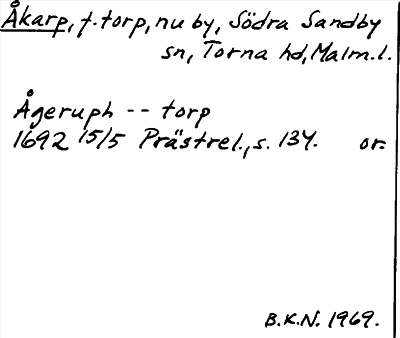 Åkarp, f. torp, nu by, Södra Sandby
sn, Torna hd, Malm. l.
Ågeruph -- torp
1692 15/5 Prästrel., s. 134. or.
B.K.N. 1969.